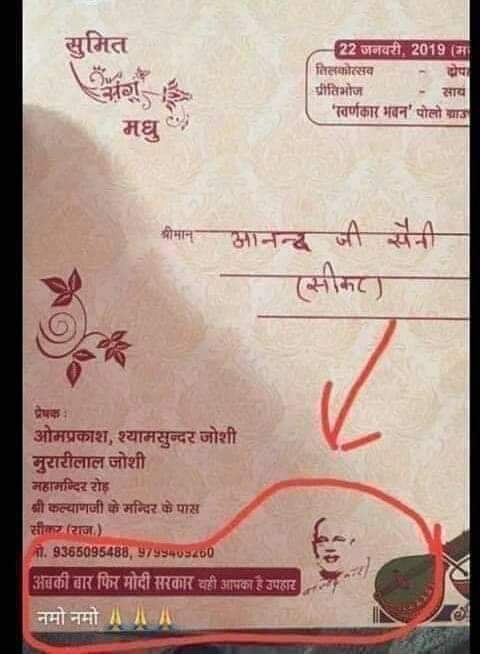 सुमित
संग
मधु
22 जनवरी, 2019
तिलकोत्सव -
प्रीतिभोज -
'स्वर्णकार भवन' पोलो
श्रीमान् आनन्द जी सैनी
(सीकर)
प्रेषक :
ओमप्रकाश, श्यामसुन्दर जोशी
मुरारीलाल जोशी
महामन्दिर रोड़
श्री कल्याणजी के मन्दिर के पास
सीकर (राज.)
मो. 9365095488,
अबकी बार फिर मोदी सरकार यही आपका है उपहार
नमो नमो 🙏🙏🙏